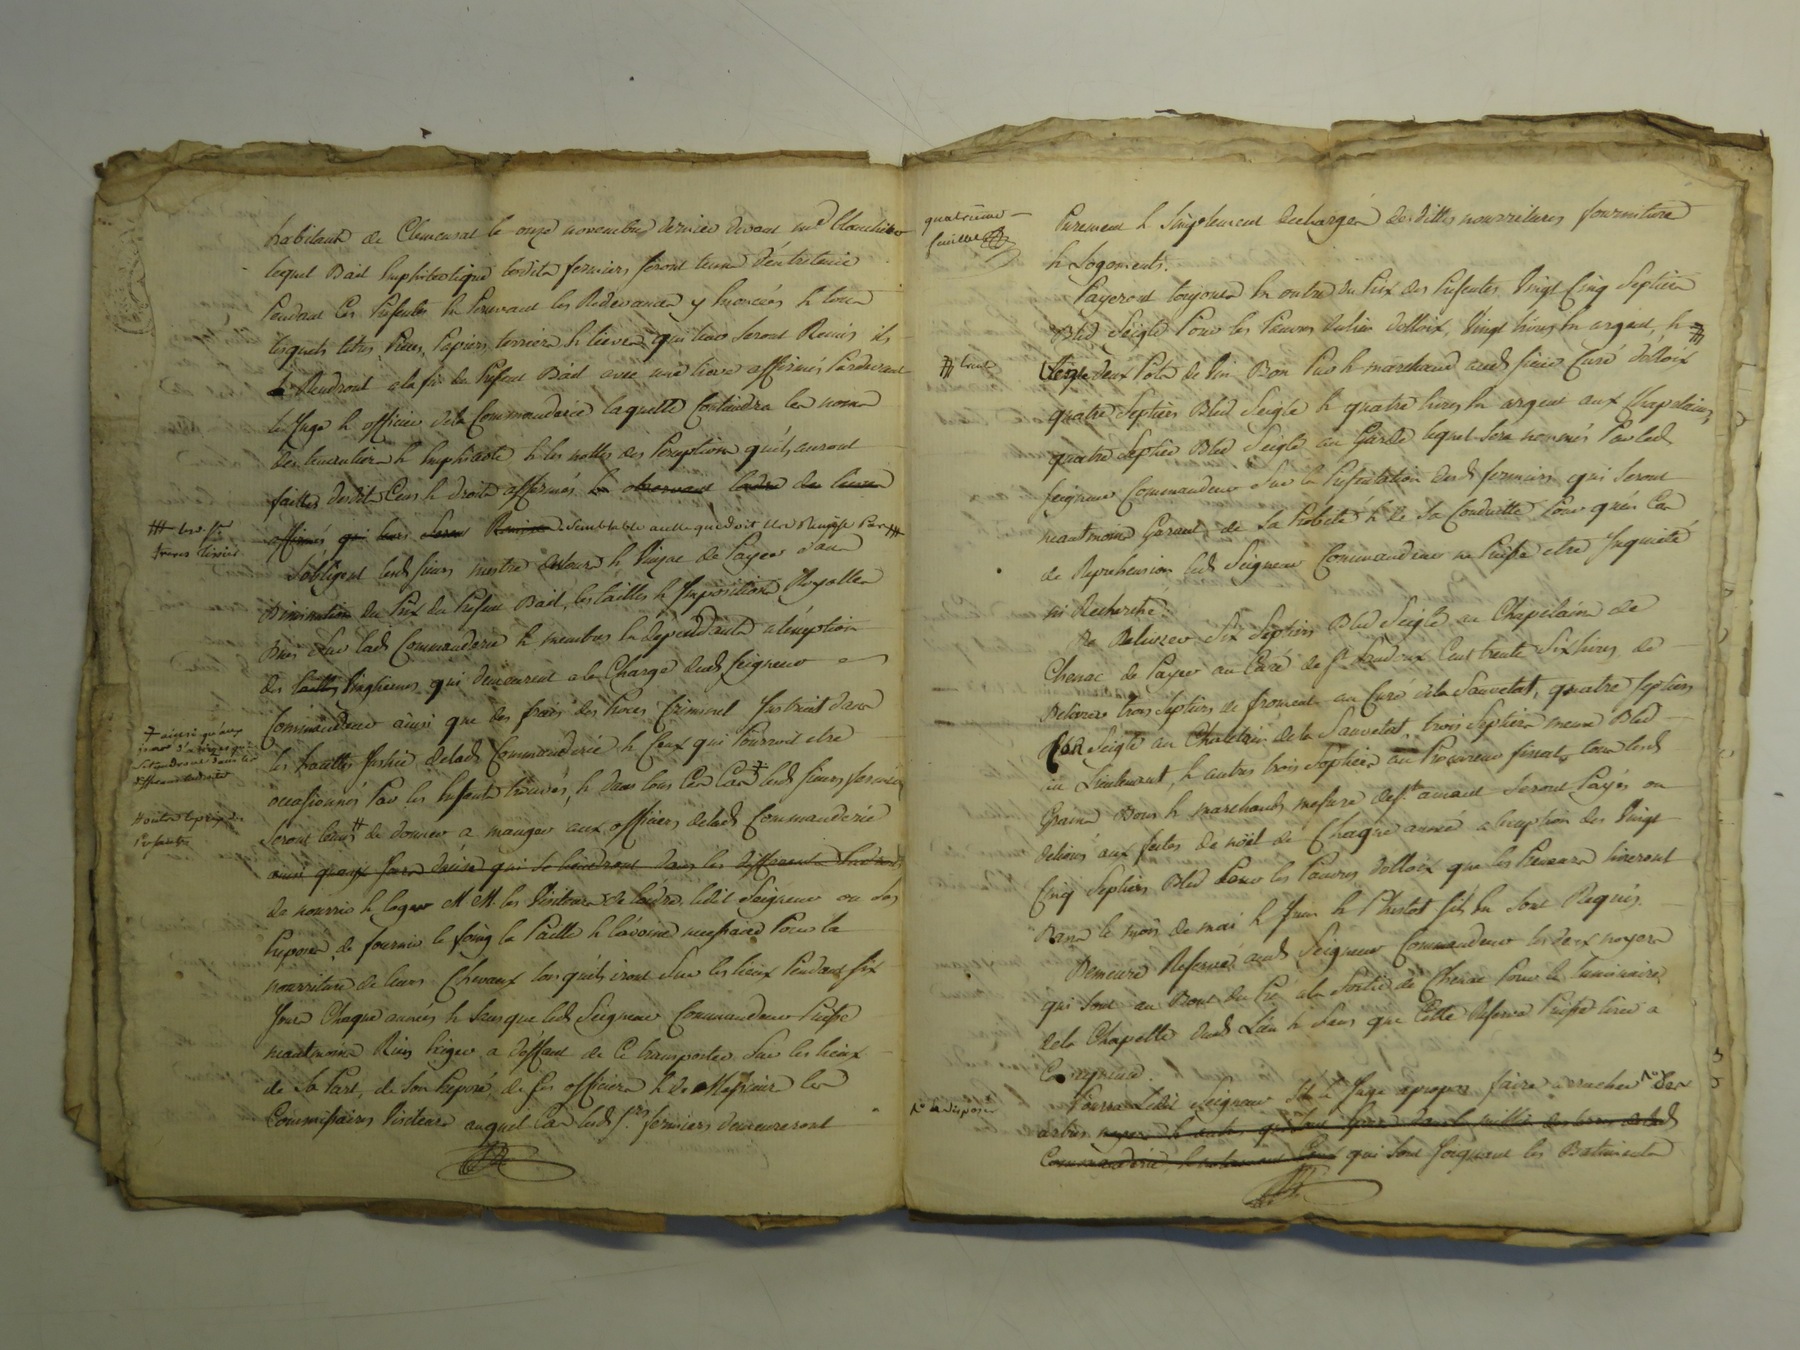 habitants de Clemensat le onze novembre dernier devant me Blanchier
lequel Bail Emphiteotique lesdits fermiers seront tenus d'entretenir
Pendant Ces Présentes En Percevant les Redevances y Enoncées & tous
lesquels titres Pieces, Papiers terriers & lieves qui leur seront Remis ils
Rendront a la fin du Présent Bail avec une lieve affirmée Pardevant
le Juge & officier de la Commanderie laquelle Contiendra les noms
des tenanciers & Emphiteotes & les nottes des Perceptions qu'ils auront
faittes desdits Cens & droits affermés
semblable a celle qui doit
s'obligent lesds sieurs & de Payer sans
Diminution du Prix du Présent Bail, les tailles & Impositions Royalles
Mises sur lade Commanderie & membres En Dépendants a l'exception
des Vingtiemes qui demeurent a la Charge duds Seigneur
Commandeur ainsi que des frais des Procès Criminel Instruit dans
les Justice delade Commanderie & Ceux qui Pourroit etre
occasionnés Par les Enfants trouvés, & dans tous Ces Cas leds sieurs fermiers
seront tenus de donner a manger aux officiers delade Commanderie
ainsi quaux Jours d'assise qui se tiendront dans les differents
de nourrir & loger M M. les Visiteurs de l'ordre, ledit Seigneur ou ses
Préposés, de fournir le foing la Paille & l'avoine necessaire Pour la
nourriture de leurs Chevaux lorsqu'ils iront sur les lieux Pendant six
Jours Chaque années & sans que leds Seigneur Commandeur Puisse
neantmoins Rien Exiger a deffaut de se transporter sur les lieux
de sa Part, de son Préposé, de ses officiers & de Messieurs les
Commissaires Visiteurs auquel Cas lesds srs fermiers demeureront
ainsi qu'aux
jours d'assises qui
se tiendront dans les
outre le prix des
Présentes
quatrieme
feuillet
Purement & simplement dechargés desdittes nourritures fourniture
& Logements.
Payeront toujours En outre du Prix des Présentes Vingt Cinq Septiers
Bled Seigle Pour les Pauvres du lieu d'olloix, Vingt livres En argent, &
deux Pots de Vin Bon Pur & marchand auds sieur Curé d'olloix
quatre Septiers Bled Seigle & quatre livres En argent aux Chapelains,
quatre Septiers Bled Seigle au Garde lequel sera nommés Par leds
seigneur Commandeur sur la Présentation desds fermiers qui seront
neantmoins Garant de sa Probité & de sa Conduitte Pour qu'en Cas
de Reprehension leds Seigneur Commandeur ne Puisse etre Inquieté
ni Recherché.
De Delivrer Six Septiers Bled Seigle au Chapelain de
Chenac de Payer au Curé de St Sandoux Cent trente Six livres, de
Delivrer trois septiers de froment au Curé de la Sauvetat, quatre septiers
Seigle au Chatelain de la Sauvetat, trois Septiers meme Bled
au Lieutenant, & autres trois Septiers au Procureur fiscal, tous lesds
Grains Bons & marchands mesure seront Payés ou
delivrés aux festes de noël de Chaque année a l'exception des Vingt
Cinq Septiers Bled Pour les Pauvres d'olloix que les Preneurs livreront
Dans le mois de mai & Juin & Plustot s'ils En sont Requis.
Demeure Reservé auds Seigneur Commandeur les deux noyers
qui sont au Bout du Pré a la Sortie de Chenac Pour le luminaire
dela Chapelle duds Lieu & sans que Cette Reserve Puisse tirer a
Consequence.
Pourra Ledit Seigneur s'il le Juge apropos faire arracher les
arbres
Commanderie, qui sont Joignant les Batiments